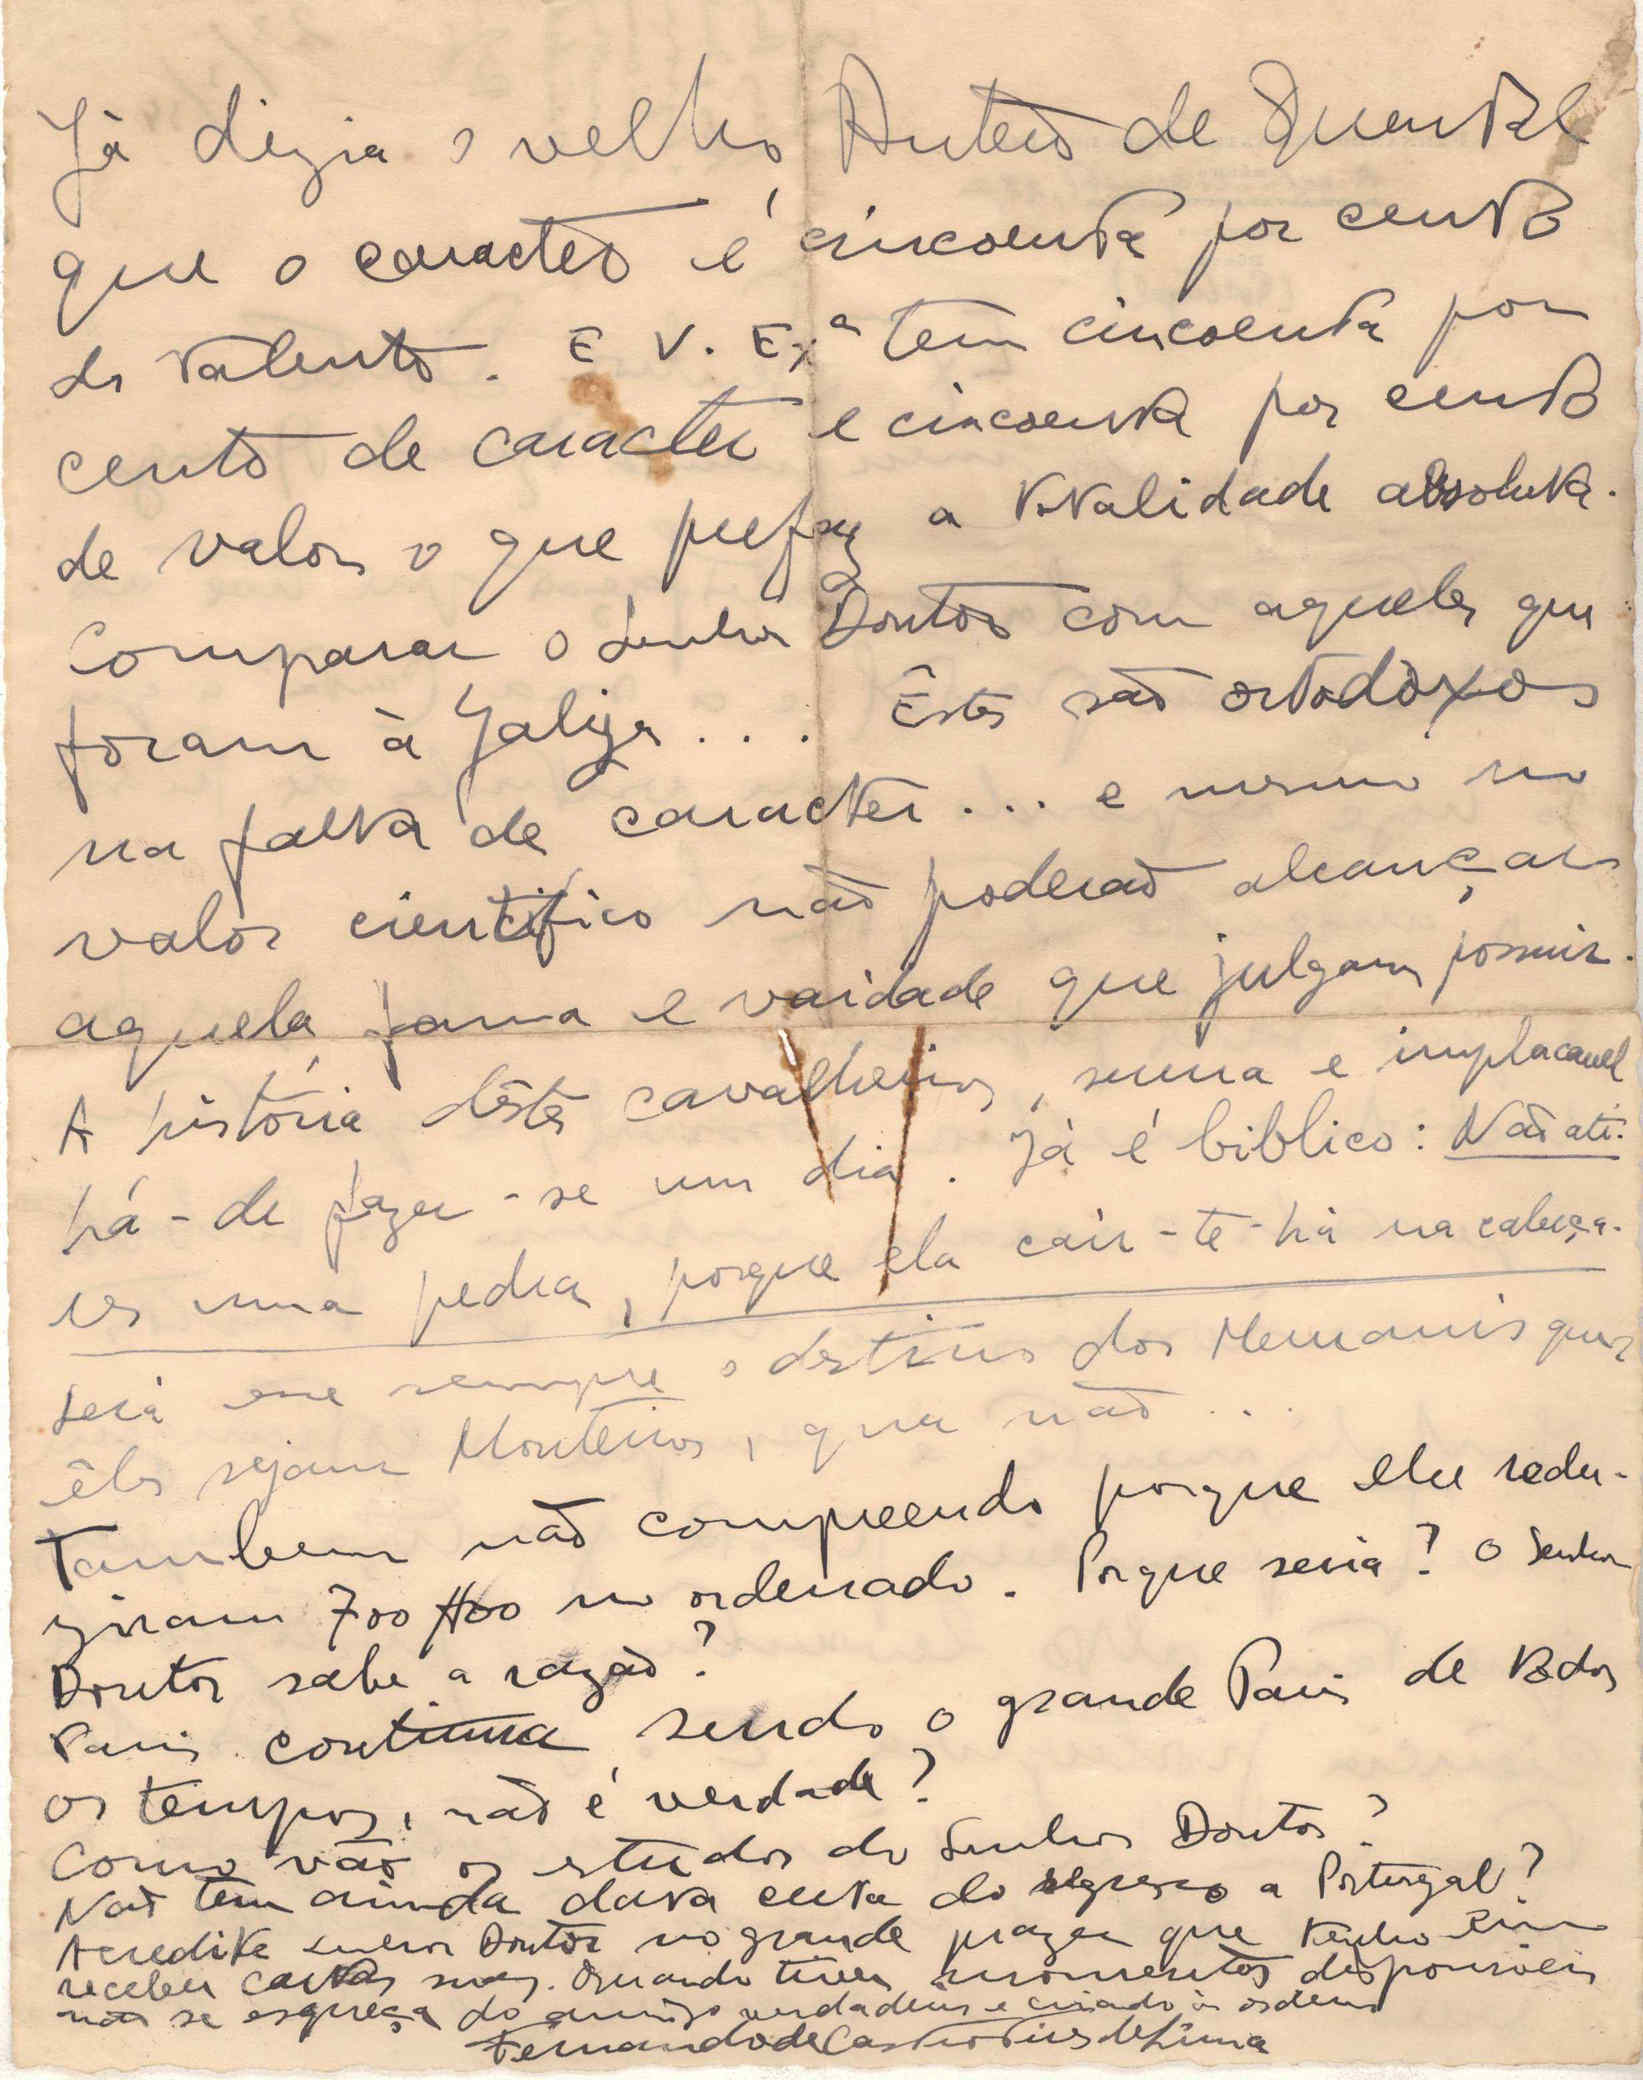 Já dizia o velho Antero de Quental
que o caracter é cincoenta por cento
do talento. E V. Exª tem cincoenta por
cento de caracter e cincoenta por cento
de valor o que prefaz a totalidade absoluta.
Comparar o Senhor Doutor com aqueles que
foram à Galiza... Êstes são ortodòxos
na falta de caracter... e mesmo no
valor cientifico não poderão alcançar
aquela fama e vaidade que julgam possuir.
A história dêstes cavalheiros, serena e implacavel
há-de fazer-se um dia. Já é biblico: Não ati-
res uma pedra, porque ela cair-te-há na cabeça.
Será esse sempre o destino dos Hernanis quer
êles sejam Monteiros, quer não...
Tambem não compreendo porque lhe redu-
ziram 700$00 no ordenado. Porque seria? O Senhor
Doutor sabe a razão?
Paris continua sendo o grande Paris de todos
os tempos, não é verdade?
Como vão os estudos do Senhor Doutor?
Não tem ainda data certa do regresso a Portugal?
Acredite Senhor Doutor no grande prazer que tenho em
receber cartas suas. Quando tiver momentos disponiveis
não se esqueça do amigo verdadeiro e criado às ordens
Fernando de Castro Pires de Lima